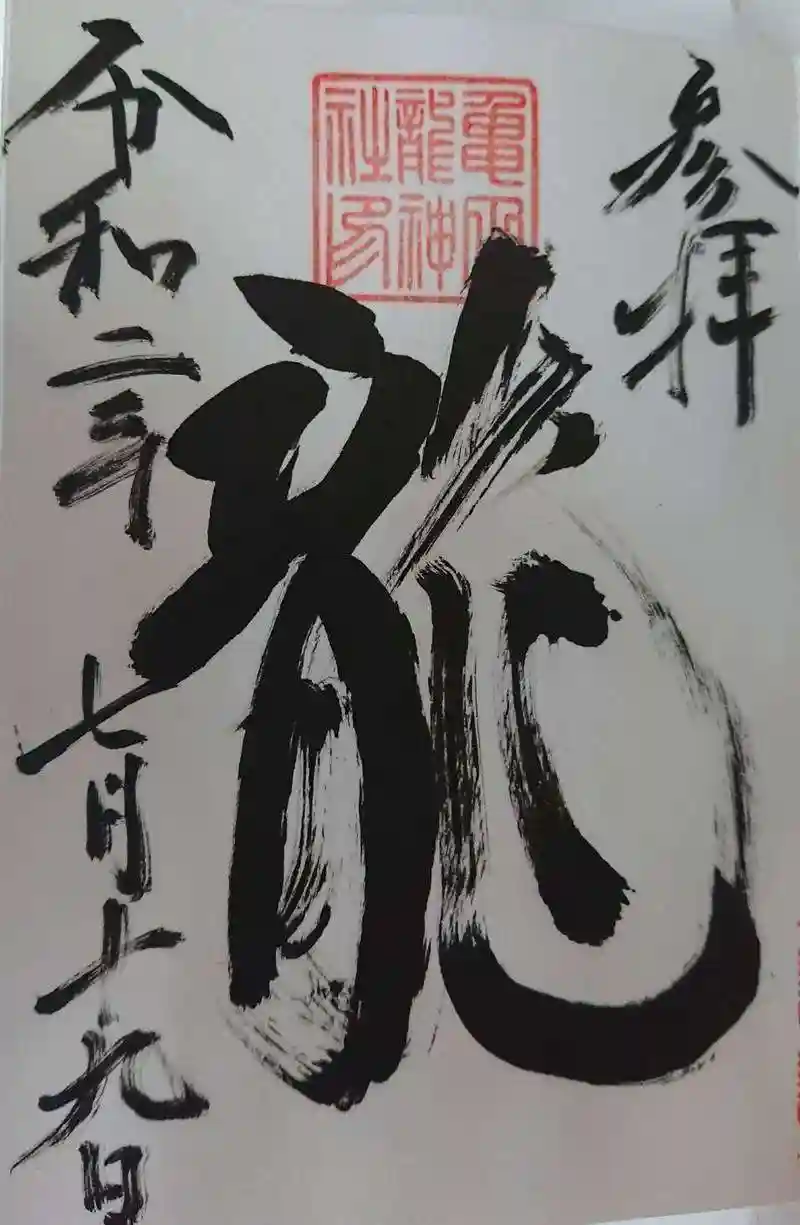 参拝
亀
龍神
社印
龍
令和二年 七月十九日